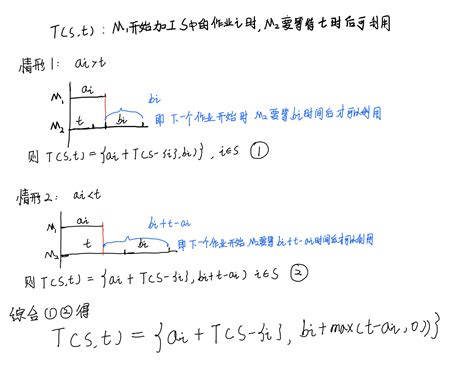 T(S,t): M₁开始加工S中的作业i时, M₂要等待t时后可利用
情形1: ai>t
M₁ ai
bi
M₂ t bi
即下一个作业开始时 M₂要等bi时间后才可以利用
则T(S,t)={ai+T(S-{i},bi)}, i∈S ①
情形2: ai<t
M₁ ai
bi+t-ai
M₂ t bi
即下一个作业开始, M₂要等bi+t-ai时间后才可以利用
则T(S,t)={ai+T(S-{i},bi+t-ai) i∈S ②
综合①②得
T(S,t)={ai+T(S-{i}, bi+max(t-ai,0))}